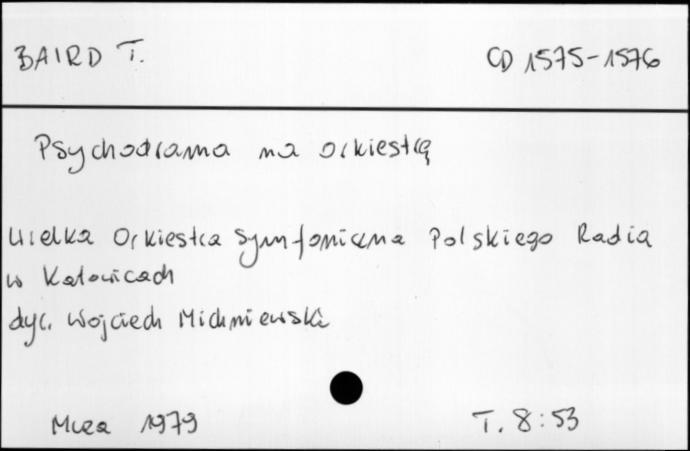 BAIRD T. CD 1575-1576
Psychodrama na orkiestrę
Wielka Orkiestra Symfoniczna Polskiego Radia
w Katowicach
dyr. Wojciech Michniewski
Muza 1979 T. 8:53